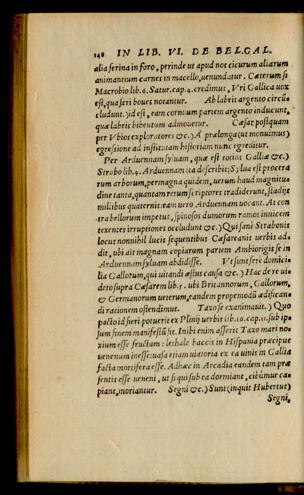 148 IN LIB. VI. DE BEL. GAL.
alia ferina in foro, perinde ut apud nos cicurum aliarum
animantium carnes in macello, uenundatur. Cæterum si
Macrobio lib. 6. Satur. cap. 4. credimus, Vri Gallica uox
est, qua feri boues notantur. Ab labris argento circũ=
cludunt.) id est, eam cornuum partem argento inducunt,
quæ labris bibentum admouetur. Cæsar postquam
per Vbios exploratores &c.) A prælonga (ut monuimus)
egressione ad institutam historiam nunc egreditur.
Per Arduennam syluam, quæ est totius Galliæ &c.)
Strabo lib. 4. Arduennam ita describit; Sylua est procera
rum arborum, permagna quidem, uerum haud magnitu
dine tanta, quantam rerum scriptores tradiderunt, stadijs
millibus quaternis: eam uero Arduennam uocant. At con
tra bellorum impetus, spinosos dumorum ramos inuicem
texentes irruptiones occludunt &c.) Qui sanè Strabonis
locus nonnihil lucis sequentibus Cæsareanis uerbis ad=
dit, ubi ait magnam copiarum partem Ambiorigis se in
Arduennam syluam abdidisse. Vt sunt ferè domici=
lia Gallorum, qui uitandi æstus causa &c.) Hac de re ui=
deto supra Cæsarem lib. 5. ubi Britannorum, Gallorum,
& Germanorum ueterum, eandem propemodũ ædifican=
di rationem ostendimus. Taxo se exanimauit.) Quo
pacto id fieri potuerit ex Plinij uerbis lib. 16. cap. 11. sub ip=
sum finem manifestũ fit. Inibi enim asserit Taxo mari no=
xium esse fructum: lethale baccis in Hispania præcipue
uenenum inesse: uasa etiam uiatoria ex ea uinis in Gallia
facta mortifera esse. Adhæc in Arcadia eandem tam præ
sentis esse ueneni, ut si qui sub ea dormiant, cibũmue ca=
piant, moriantur. Segni &c.) Sunt (inquit Hubertus)
Segni,